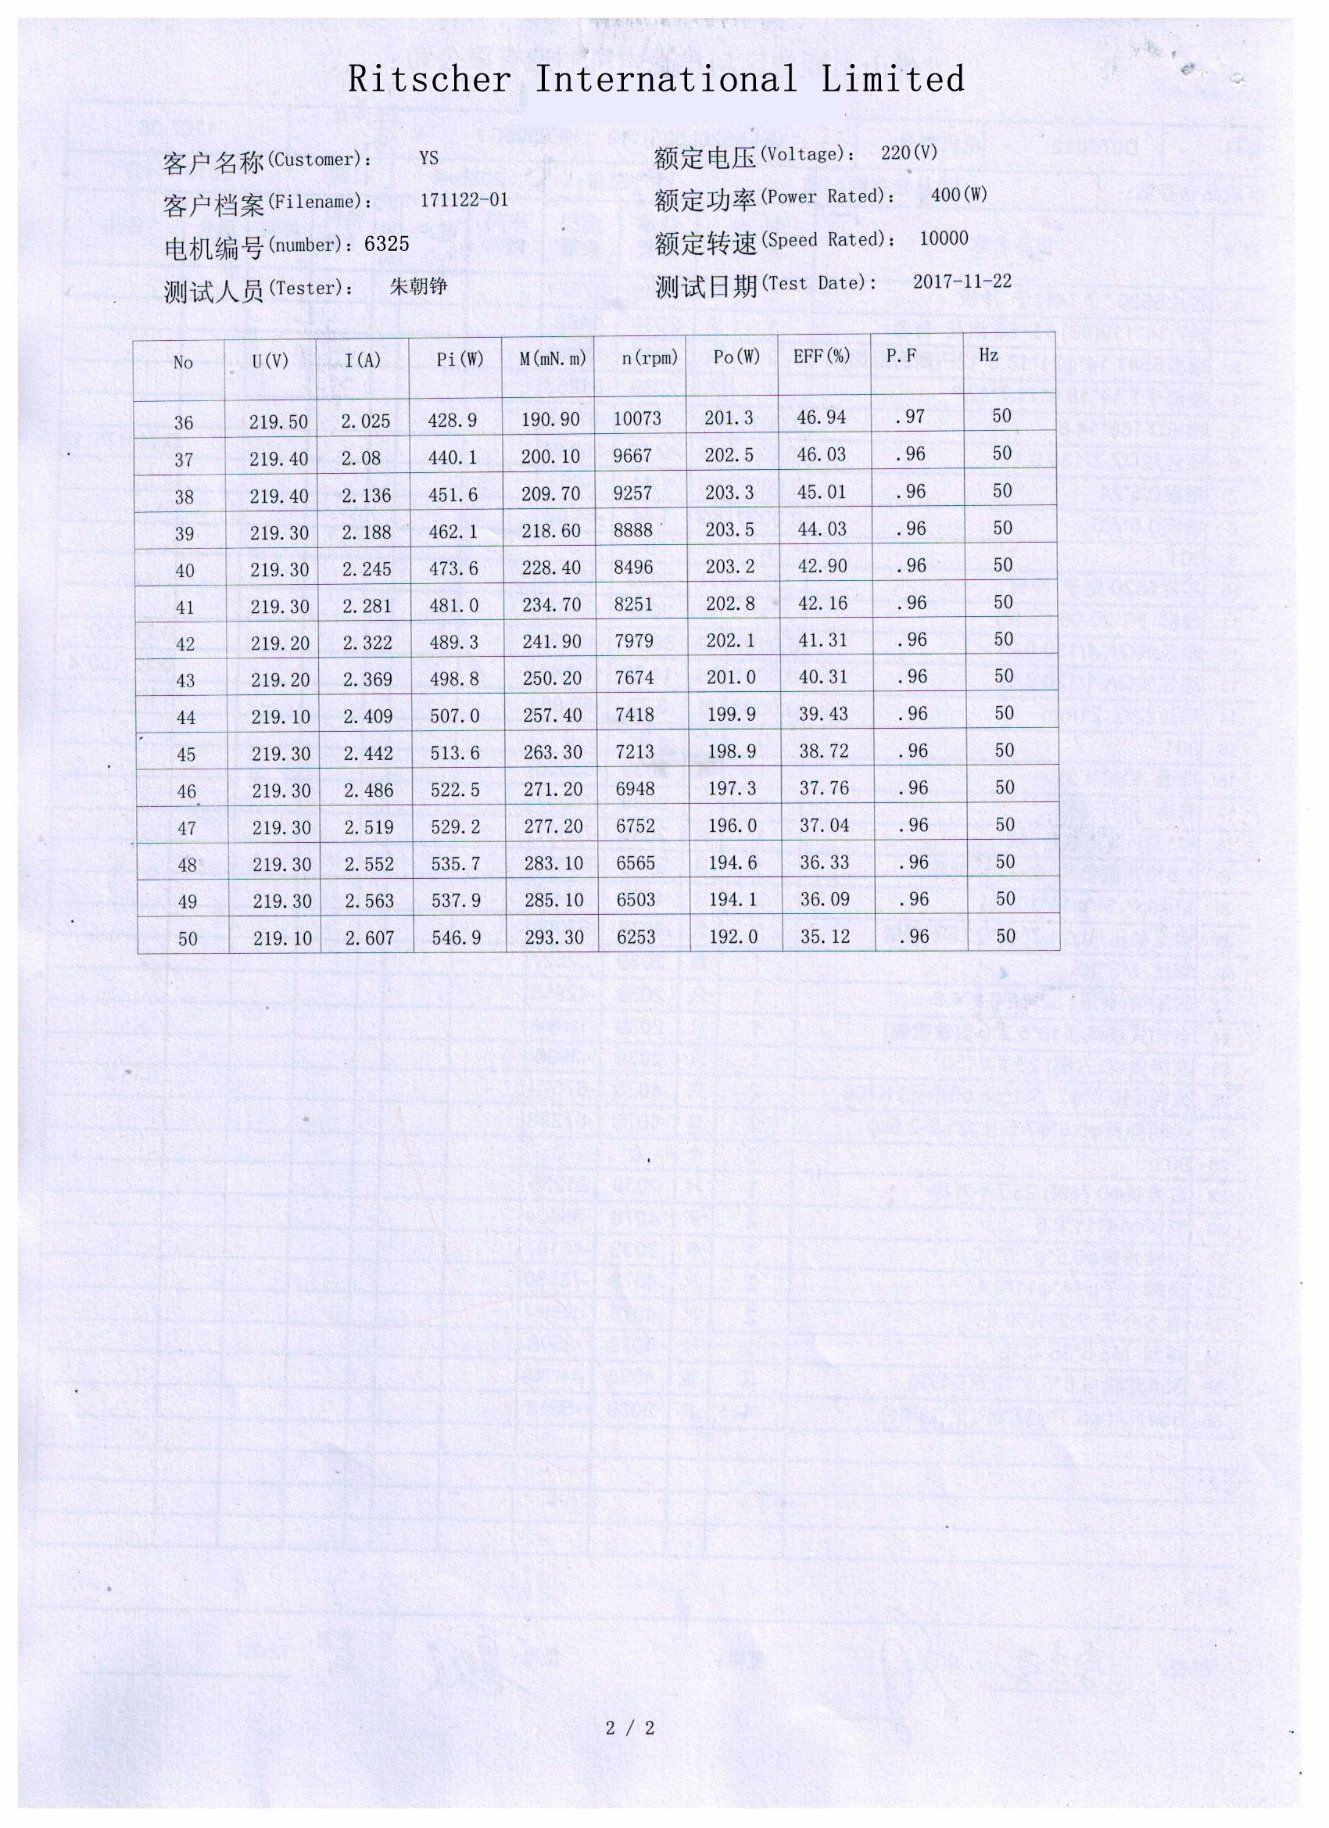 Ritscher International Limited
客户名称(Customer): YS 额定电压(Voltage): 220(V)
客户档案(Filename): 171122-01 额定功率(Power Rated): 400(W)
电机编号(number): 6325 额定转速(Speed Rated): 10000
测试人员(Tester): 朱朝铮 测试日期(Test Date): 2017-11-22
No U(V) I(A) Pi(W) M(mN.m) n(rpm) Po(W) EFF(%) P.F Hz
36 219.50 2.025 428.9 190.90 10073 201.3 46.94 .97 50
37 219.40 2.08 440.1 200.10 9667 202.5 46.03 .96 50
38 219.40 2.136 451.6 209.70 9257 203.3 45.01 .96 50
39 219.30 2.188 462.1 218.60 8888 203.5 44.03 .96 50
40 219.30 2.245 473.6 228.40 8496 203.2 42.90 .96 50
41 219.30 2.281 481.0 234.70 8251 202.8 42.16 .96 50
42 219.20 2.322 489.3 241.90 7979 202.1 41.31 .96 50
43 219.20 2.369 498.8 250.20 7674 201.0 40.31 .96 50
44 219.10 2.409 507.0 257.40 7418 199.9 39.43 .96 50
45 219.30 2.442 513.6 263.30 7213 198.9 38.72 .96 50
46 219.30 2.486 522.5 271.20 6948 197.3 37.76 .96 50
47 219.30 2.519 529.2 277.20 6752 196.0 37.04 .96 50
48 219.30 2.552 535.7 283.10 6565 194.6 36.33 .96 50
49 219.30 2.563 537.9 285.10 6503 194.1 36.09 .96 50
50 219.10 2.607 546.9 293.30 6253 192.0 35.12 .96 50
2 / 2